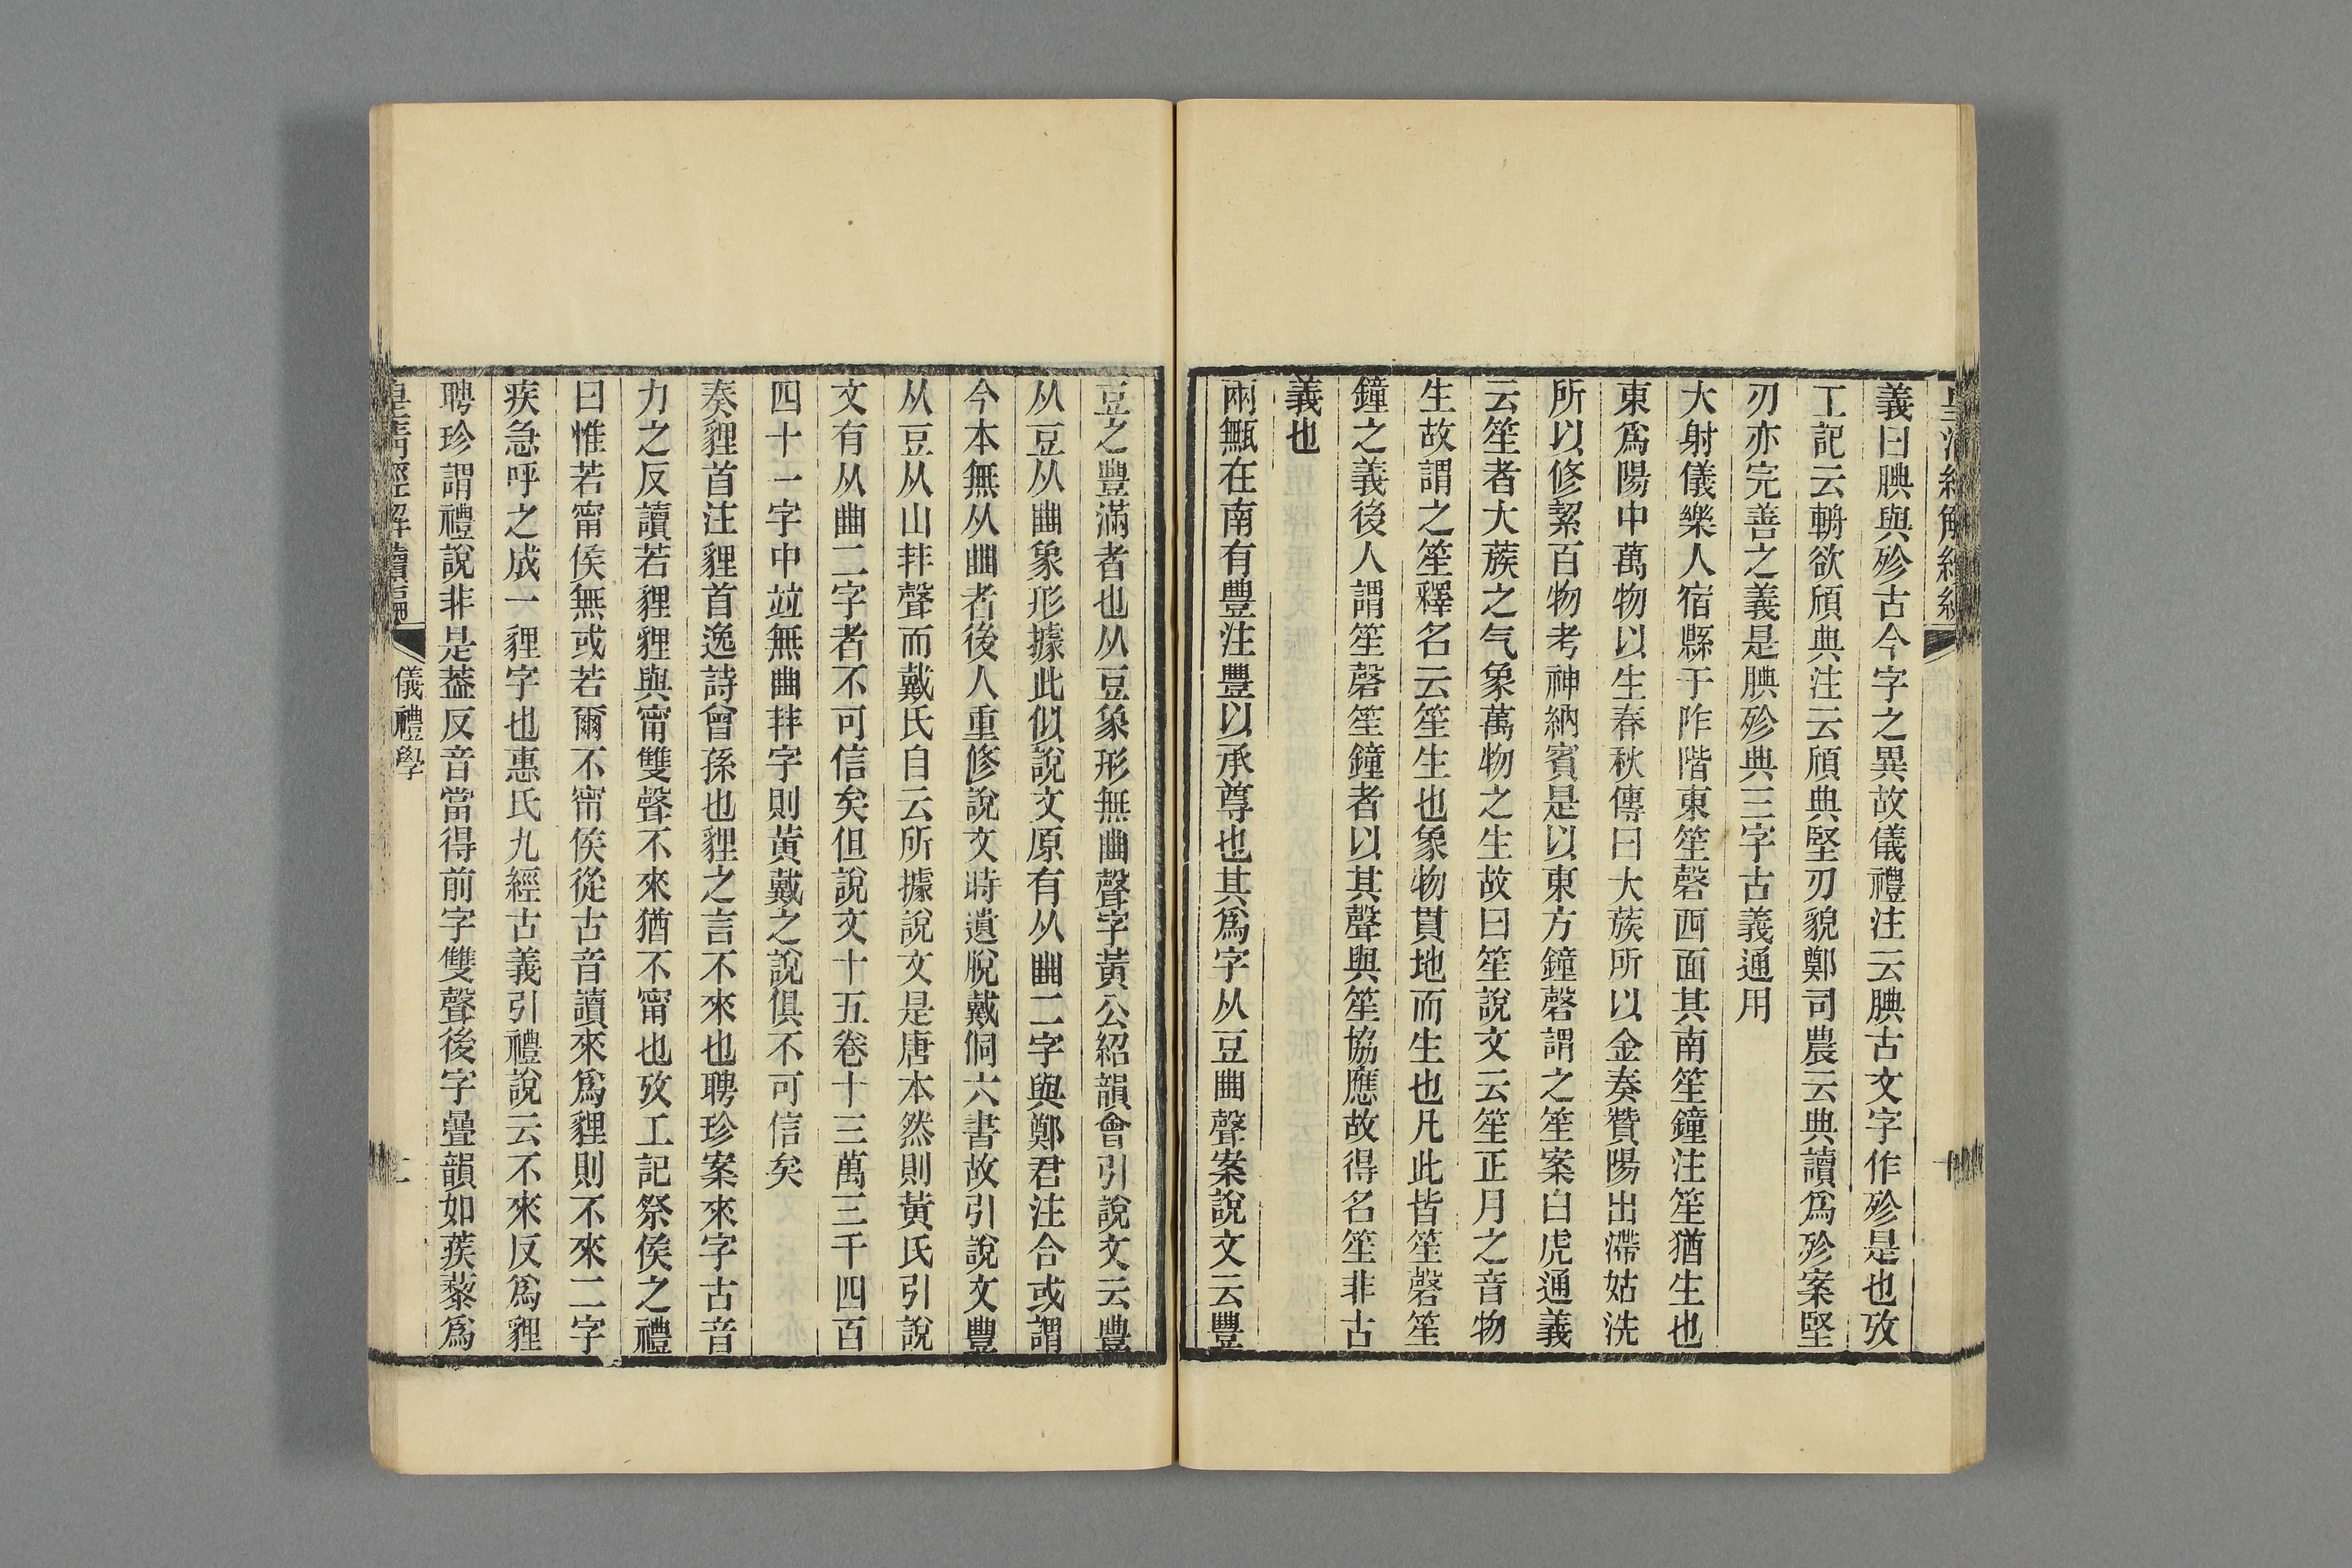 義曰腆與殄古今字之異故儀禮注云腆古文字作殄是也攷
工記云輈欲頎典注云頎典堅刃貌鄭司農云典讀爲殄案堅
刃亦完善之義是腆殄典三字古義通用
大射儀樂人宿縣于阼階東笙磬西面其南笙鐘注笙猶生也
東爲陽中萬物以生春秋傳曰大蔟所以金奏贊陽出滯姑洗
所以修絜百物考神納賓是以東方鐘磬謂之笙案白虎通義
云笙者大蔟之气象萬物之生故曰笙說文云笙正月之音物
生故謂之笙釋名云笙生也象物貫地而生也凡此皆笙磬笙
鐘之義後人謂笙磬笙鐘者以其聲與笙協應故得名笙非古
義也
兩甒在南有豐注豐以承尊也其爲字从豆𠁳聲案說文云豐
豆之豐滿者也从豆象形無𠁳聲字黃公紹韻會引說文云豐
从豆从𠁳象形據此似說文原有从𠁳二字與鄭君注合或謂
今本無从𠁳者後人重修說文時遺脫戴侗六書故引說文豐
从豆从山丰聲而戴氏自云所據說文是唐本然則黃氏引說
文有从𠁳二字者不可信矣但說文十五卷十三萬三千四百
四十一字中竝無𠁳字則黃戴之說俱不可信矣
奏貍首注貍首逸詩曾孫也貍之言不來也聘珍案來字古音
力之反讀若貍貍與甯雙聲不來猶不甯也攷工記祭侯之禮
曰惟若甯侯無或若爾不甯侯從古音讀來爲貍則不來二字
疾急呼之成一貍字也惠氏九經古義引禮說云不來反爲貍
聘珍謂禮說非是葢反音當得前字雙聲後字疊韻如蒺藜爲
皇清經解續編 儀禮學 二